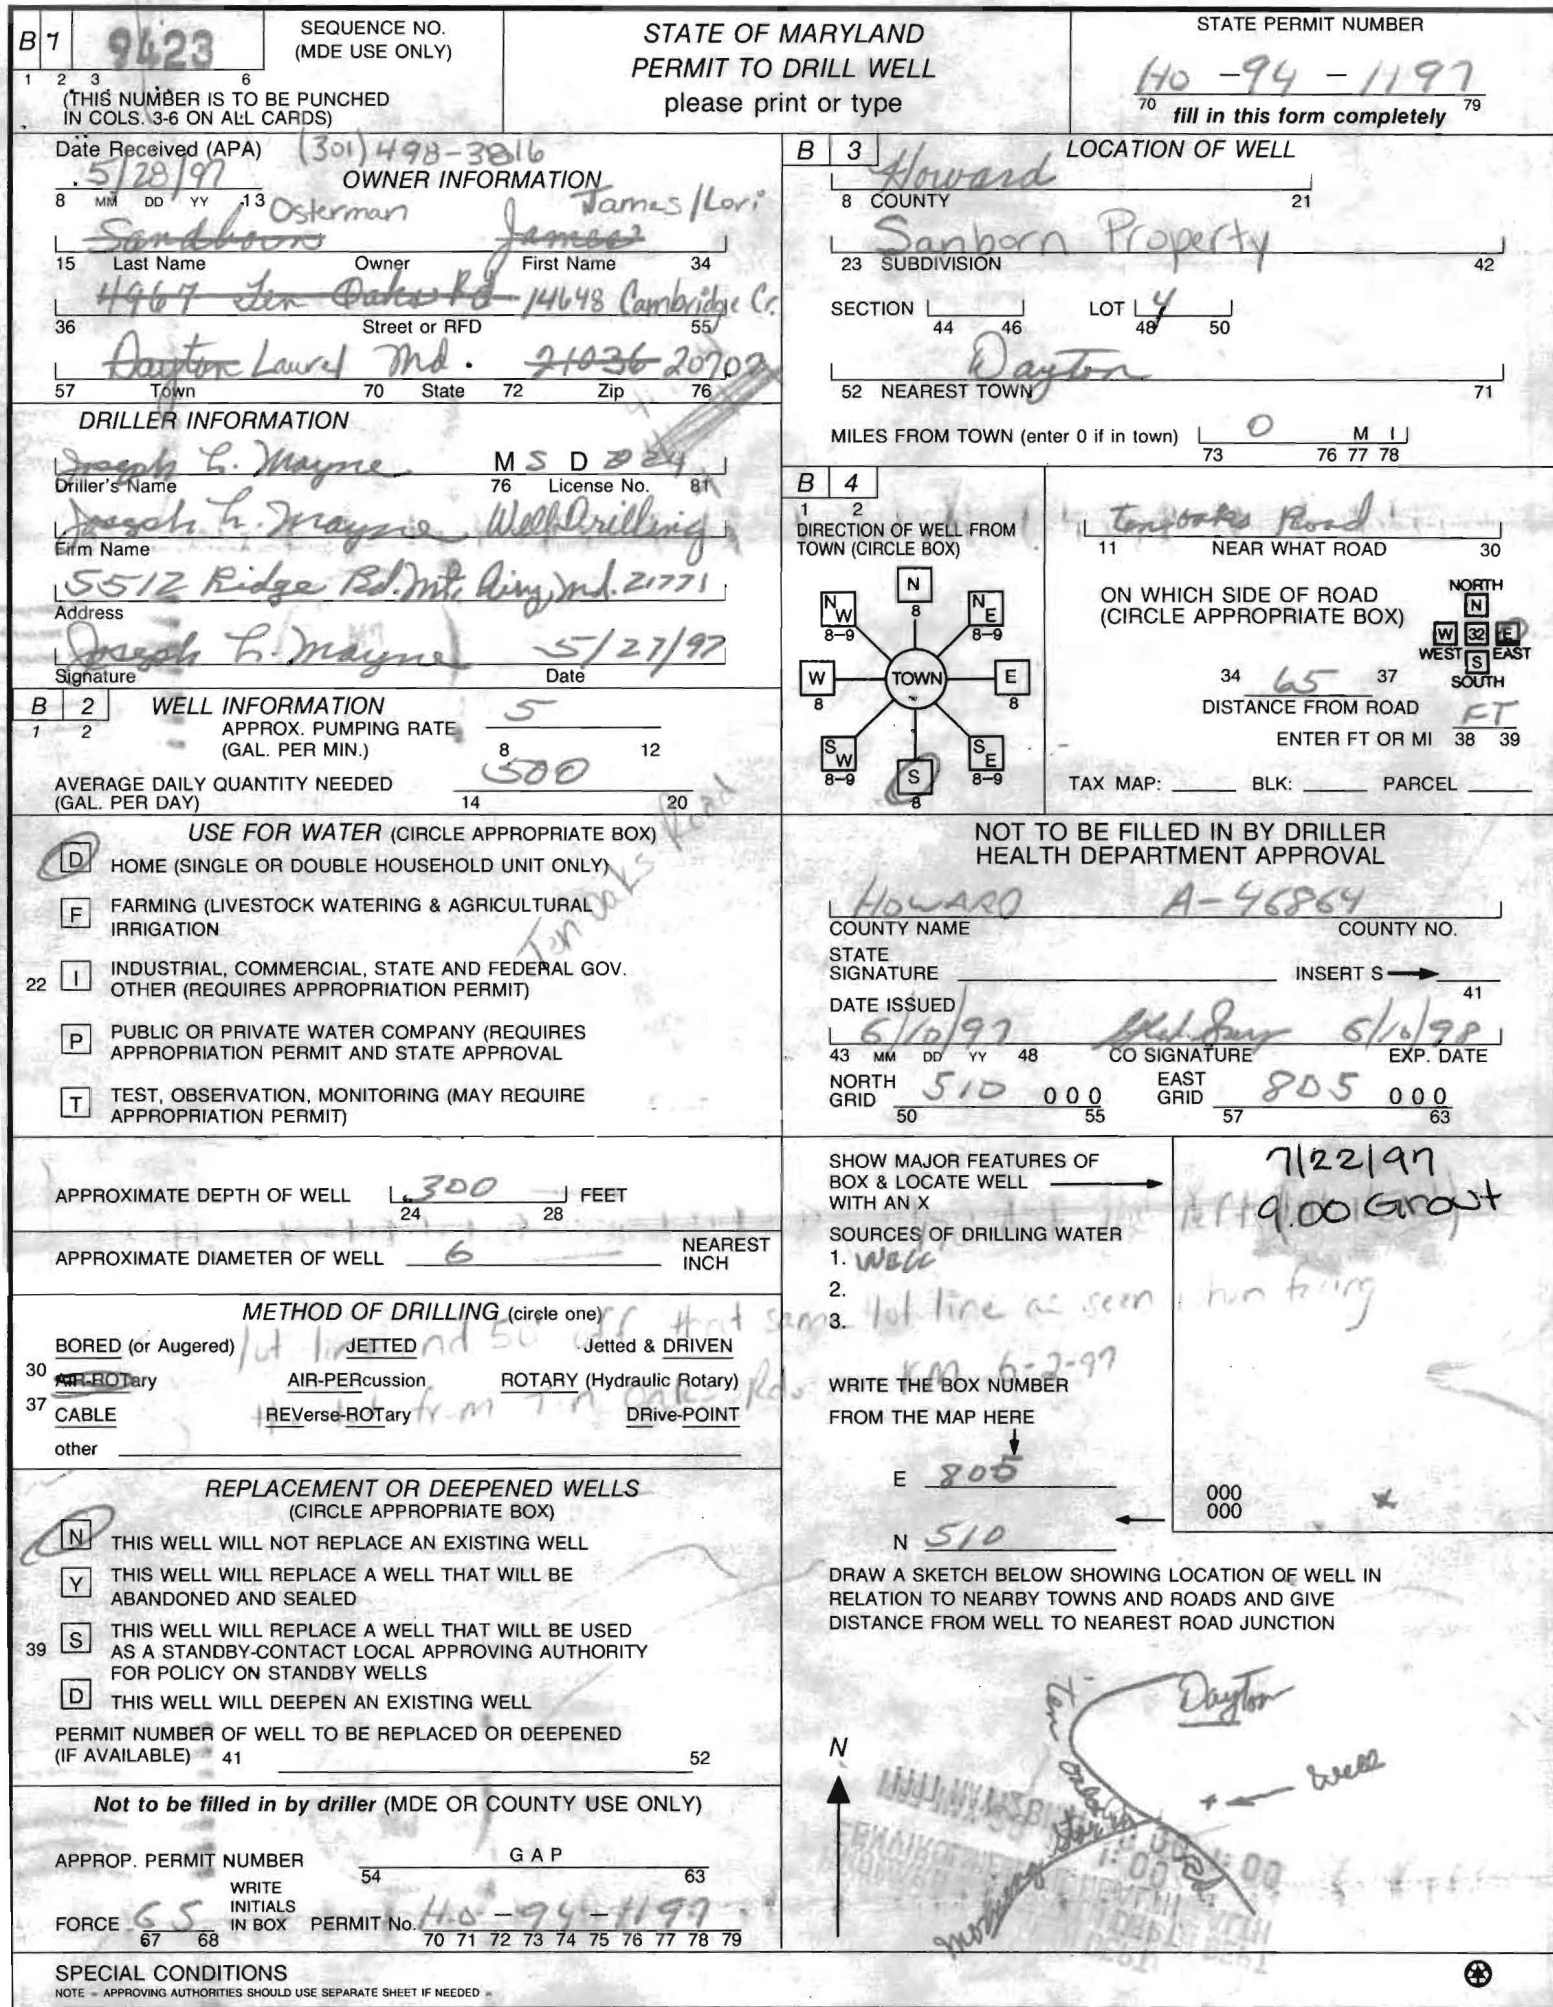 B 1 9423 SEQUENCE NO. (MDE USE ONLY)
1 2 3 6
(THIS NUMBER IS TO BE PUNCHED
IN COLS. 3-6 ON ALL CARDS)
STATE OF MARYLAND
PERMIT TO DRILL WELL
please print or type
STATE PERMIT NUMBER
HO - 94 - 1197
70 fill in this form completely 79
Date Received (APA) (301) 498-3816
5/28/97 OWNER INFORMATION
8 MM DD YY 13 Osterman James/Lori
Sandborn James
15 Last Name Owner First Name 34
4967 Ten Oaks Rd 14648 Cambridge Cr.
36 Street or RFD 55
Dayton Laurel Md. 21036 20707
57 Town 70 State 72 Zip 76
DRILLER INFORMATION
Joseph L. Mayne M S D 024
Driller's Name 76 License No. 81
Joseph L. Mayne Well Drilling
Firm Name
5512 Ridge Rd. Mt. Airy, Md. 21771
Address
Joseph L. Mayne 5/27/97
Signature Date
B 2 WELL INFORMATION
1 2 APPROX. PUMPING RATE 5
(GAL. PER MIN.) 8 12
AVERAGE DAILY QUANTITY NEEDED 500
(GAL. PER DAY) 14 20
USE FOR WATER (CIRCLE APPROPRIATE BOX)
D HOME (SINGLE OR DOUBLE HOUSEHOLD UNIT ONLY)
F FARMING (LIVESTOCK WATERING & AGRICULTURAL
IRRIGATION
22 I INDUSTRIAL, COMMERCIAL, STATE AND FEDERAL GOV.
OTHER (REQUIRES APPROPRIATION PERMIT)
P PUBLIC OR PRIVATE WATER COMPANY (REQUIRES
APPROPRIATION PERMIT AND STATE APPROVAL
T TEST, OBSERVATION, MONITORING (MAY REQUIRE
APPROPRIATION PERMIT)
Ten Oaks Road
APPROXIMATE DEPTH OF WELL 300 FEET
24 28
APPROXIMATE DIAMETER OF WELL 6 NEAREST
INCH
METHOD OF DRILLING (circle one)
BORED (or Augered) JETTED Jetted & DRIVEN
30 AIR-ROTary AIR-PERcussion ROTARY (Hydraulic Rotary)
37 CABLE REVerse-ROTary DRive-POINT
other
REPLACEMENT OR DEEPENED WELLS
(CIRCLE APPROPRIATE BOX)
N THIS WELL WILL NOT REPLACE AN EXISTING WELL
Y THIS WELL WILL REPLACE A WELL THAT WILL BE
ABANDONED AND SEALED
39 S THIS WELL WILL REPLACE A WELL THAT WILL BE USED
AS A STANDBY-CONTACT LOCAL APPROVING AUTHORITY
FOR POLICY ON STANDBY WELLS
D THIS WELL WILL DEEPEN AN EXISTING WELL
PERMIT NUMBER OF WELL TO BE REPLACED OR DEEPENED
(IF AVAILABLE) 41 52
Not to be filled in by driller (MDE OR COUNTY USE ONLY)
APPROP. PERMIT NUMBER G A P
54 63
FORCE GS WRITE INITIALS IN BOX PERMIT No. HO-94-1197
67 68 70 71 72 73 74 75 76 77 78 79
SPECIAL CONDITIONS
NOTE - APPROVING AUTHORITIES SHOULD USE SEPARATE SHEET IF NEEDED
B 3 LOCATION OF WELL
Howard
8 COUNTY 21
Sanborn Property
23 SUBDIVISION 42
SECTION LOT 4
44 46 48 50
Dayton
52 NEAREST TOWN 71
MILES FROM TOWN (enter 0 if in town) 0 M I
73 76 77 78
B 4
1 2
DIRECTION OF WELL FROM
TOWN (CIRCLE BOX)
N 8
NW 8-9 NE 8-9
W 8 TOWN E 8
SW 8-9 SE 8-9
S 8
Ten oaks Road
11 NEAR WHAT ROAD 30
ON WHICH SIDE OF ROAD
(CIRCLE APPROPRIATE BOX)
NORTH
N
W 32 E
WEST S EAST
SOUTH
34 65 37
DISTANCE FROM ROAD FT
ENTER FT OR MI 38 39
TAX MAP: BLK: PARCEL
NOT TO BE FILLED IN BY DRILLER
HEALTH DEPARTMENT APPROVAL
HOWARD A-46864
COUNTY NAME COUNTY NO.
STATE
SIGNATURE INSERT S
41
DATE ISSUED
6/10/97 6/10/98
43 MM DD YY 48 CO SIGNATURE EXP. DATE
NORTH GRID 510 000 EAST GRID 805 000
50 55 57 63
SHOW MAJOR FEATURES OF
BOX & LOCATE WELL
WITH AN X
7/22/97
9:00 Grout
SOURCES OF DRILLING WATER
1. WELL
2.
3.
lot line as seen
KM 6-2-97
WRITE THE BOX NUMBER
FROM THE MAP HERE
E 805
N 510
000
000
DRAW A SKETCH BELOW SHOWING LOCATION OF WELL IN
RELATION TO NEARBY TOWNS AND ROADS AND GIVE
DISTANCE FROM WELL TO NEAREST ROAD JUNCTION
Dayton
Ten oaks Rd.
N
Well
Morning Star